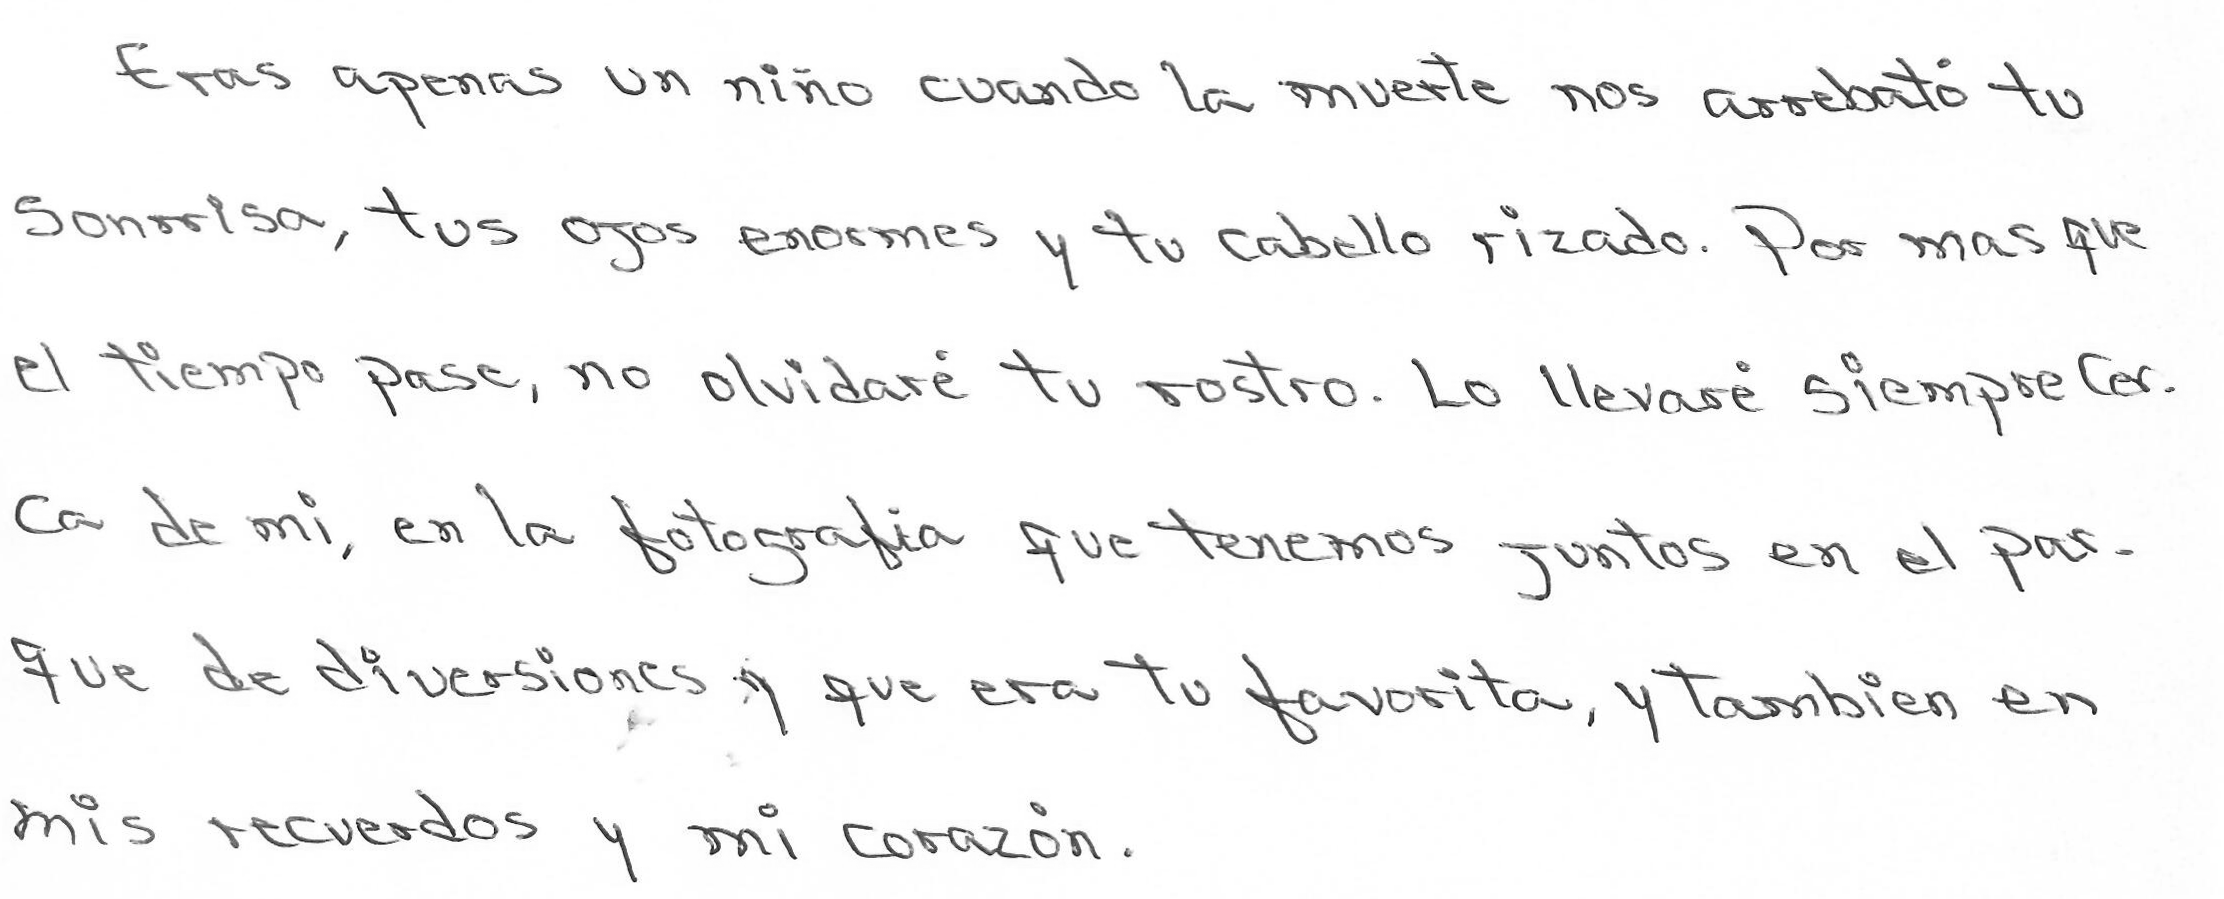 Eras apenas un niño cuando la muerte nos arrebató tu
sonrrisa, tus ojos enormes y tu cabello rizado. Por mas que
el tiempo pase, no olvidaré tu rostro. Lo llevaré siempre cer-
ca de mi, en la fotografia que tenemos juntos en el par-
que de diversiones y que era tu favorita, y tambien en
mis recuerdos y mi corazón.